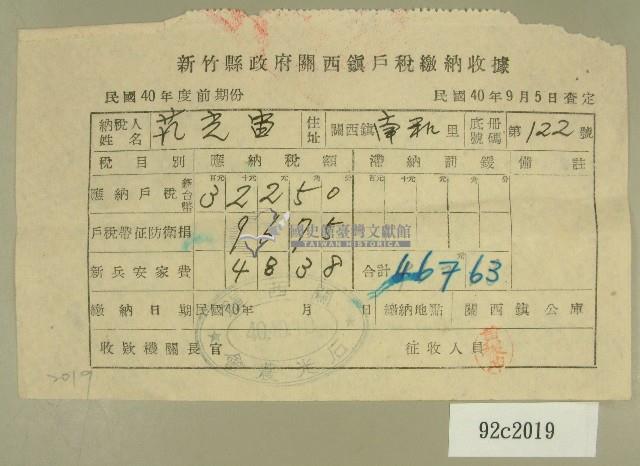 新竹縣政府關西鎮戶稅繳納收據
民國40年度前期份 民國40年9月5日查定
納稅人姓名 范光宙 住址 關西鎮南和里 底冊號碼 第122號
稅目別 應納稅額 滯納罰鍰 備註
百元 十元 元 角 分 百元 十元 元 角 分
應納戶稅 新台幣 32250
戶稅帶征防衛捐 9675
新兵安家費 4838 合計 46763
國史館臺灣文獻館
TAIWAN HISTORICA
繳納日期 民國40年 月 日 繳納地點 關西鎮公庫
收款機關長官 征收人員
2019
92c2019